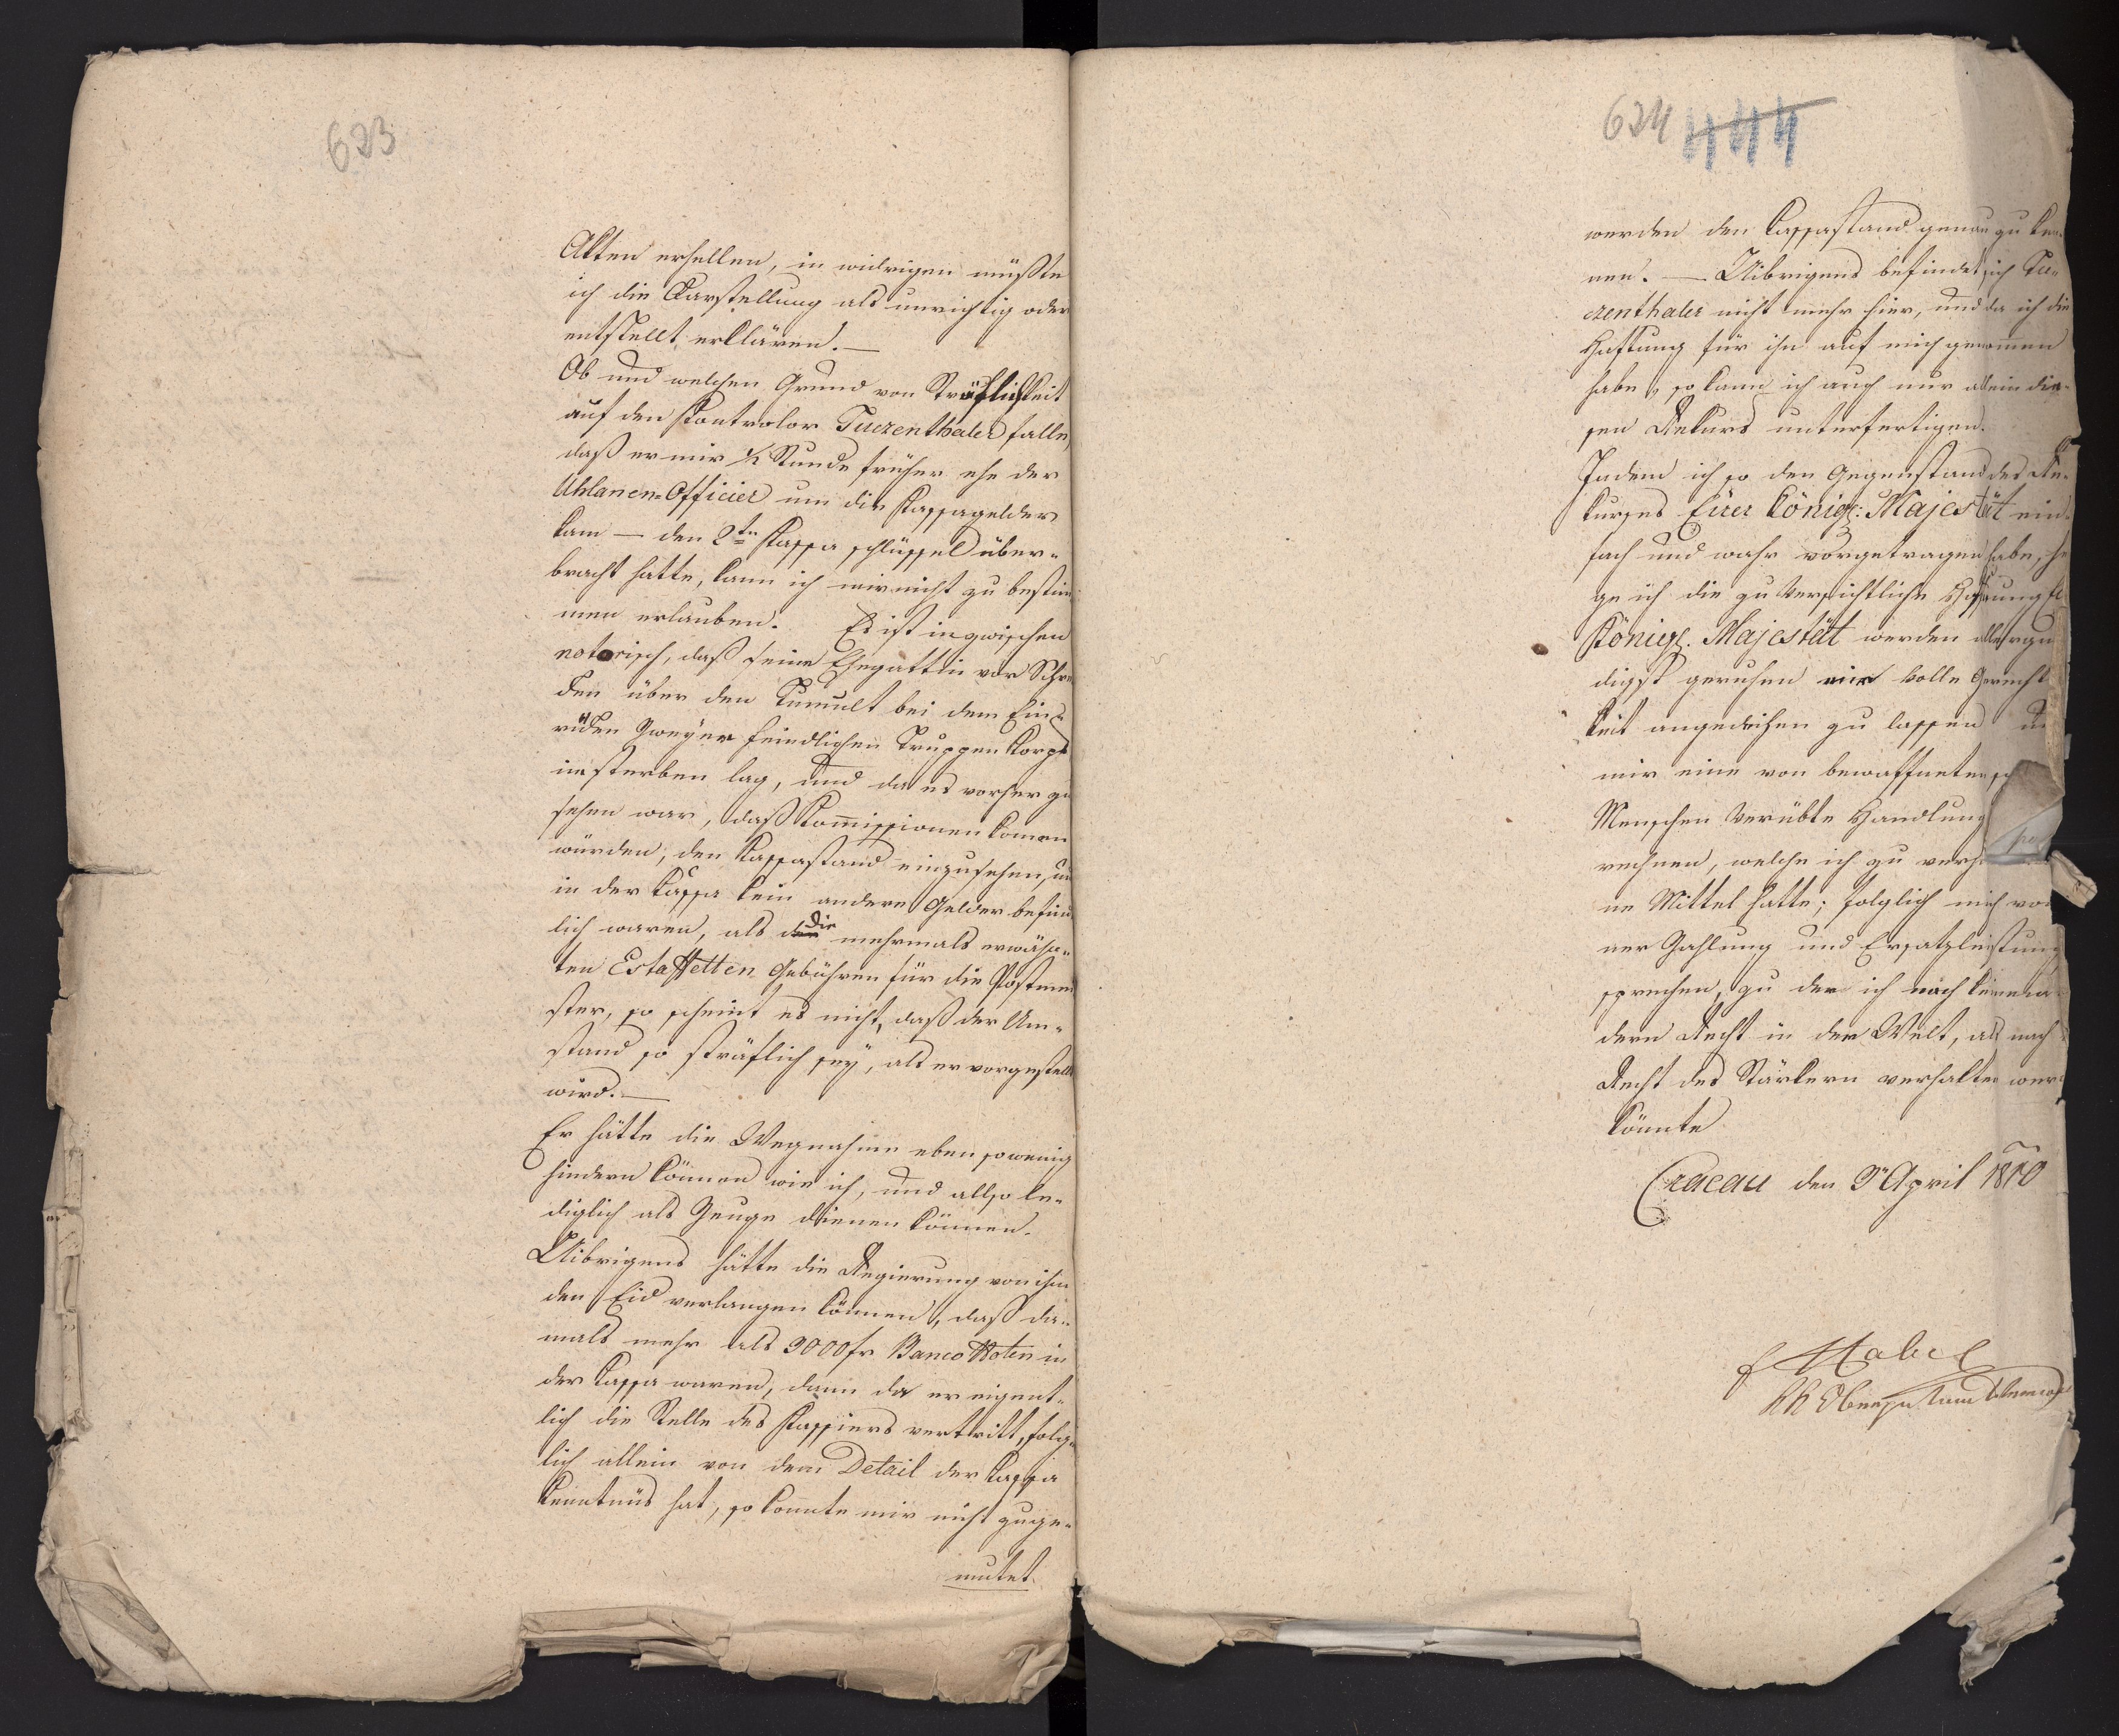 623
Akten erhellen, in widrigen müßte
ich die Darstellung als unrichtig oder
entstellt erklären. —
Ob und welchen Grund von Sträflichkeit
auf den Kontrolor Tuczenthaler falle,
daß er mir ½ Stunde früher ehe der
Uhlanen-Officier um die Kassagelder
kam — den 2ten Kassa schlüssel über-
bracht hatte, kann ich mir nicht zu bestim
men erlauben. Es ist inzwischen
notorisch, daß seine Ehegattin vor Schre
ken über den Tumult bei dem Ein-
rüken Zweyer feindlichen Truppen Korps
im sterben lag, und da es vorher zu
sehen war, daß Kommissionen komen
würden, den Kassastand einzusehen, und
in der Kassa kein andere Gelder befind
lich waren, als die mehrmals erwähn-
ten Estaffetten Gebühren für die Postmei
ster, so scheint es nicht, daß der Um-
stand so sträflich sey, als er vorgestellt
wird. —
Er hätte die Wegnahme eben so wenig
hindern können wie ich, und allso le-
diglich als Zeuge dienen können.
Uibrigens hätte die Regierung von ihm
den Eid verlangen können, daß da-
mals mehr als 9000 fr Banco Noten in
der Kassa waren, dann da er eigent-
lich die Stelle des Kassiers vertritt, folg-
lich allein von dem Detail der Kassa
Kenntniß hat, so konnte mir nicht zuge-
mutet
624 444
werden den Kassastand genau zu ken
nen. — Uibrigens befindet sich Tu-
czenthaler nicht mehr hier, und da ich die
Haftung für ihn auf mich genommen
habe, so kann ich auch nur allein die-
sen Rekurs unterfertigen.
Indem ich so den Gegenstand des Re-
kurses Eürer königl: Majestät ein-
fach und wahr vorgetragen habe, he
ge ich die zu versichtliche Hofnung
Königl. Majestät werden allergn
digst geruhen mir volle Gerecht
keit angedeihen zu lassen
mir eine von bewaffneten
Menschen verübte Handlung
rechnen, welche ich zu verh
ne Mittel hatte; folglich mich von
ner Zahlung und Ersatzleistung
sprechen, zu der ich nach keinem an
dern Recht in der Welt, als nach
Recht des Stärkern verhalten werd
könnte
Cracau den 9n April 1810